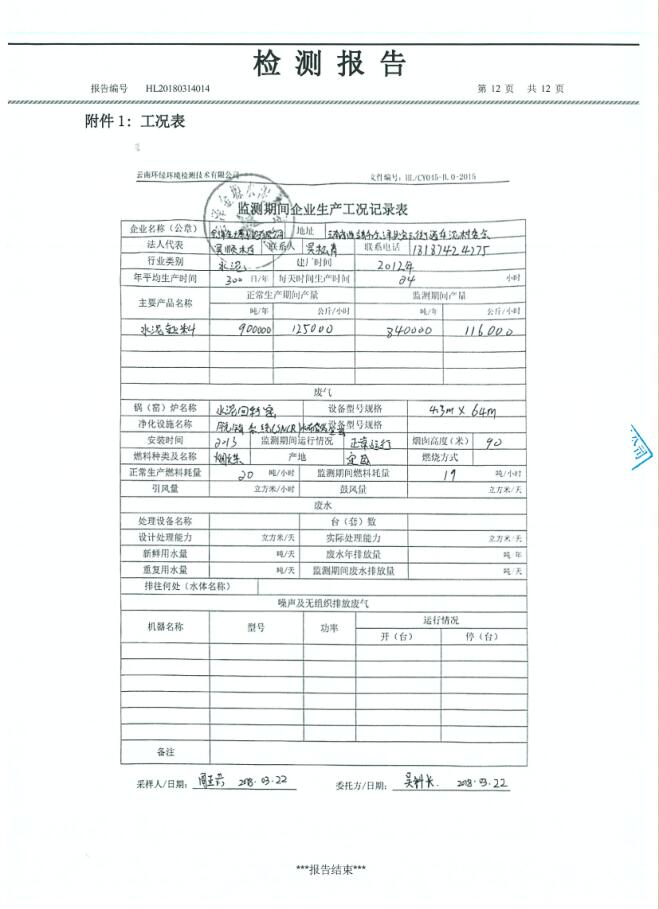 检测报告
报告编号 HL20180314014 第 12 页 共 12 页
附件 1: 工况表
云南环绿环境检测技术有限公司 文件编号: HL/CY045-B.0-2015
监测期间企业生产工况记录表
企业名称（公章） 地址
法人代表 联系人 吴松青 联系电话 13187424775
行业类别 水泥 建厂时间 2012年
年平均生产时间 300 日/年 每天时间生产时间 24 小时
主要产品名称 正常生产期间产量 监测期间产量
吨/年 公斤/小时 吨/年 公斤/小时
水泥熟料 900000 125000 840000 116000
废气
锅（窑）炉名称 水泥回转窑 设备型号规格 4.3m×64m
净化设施名称 脱硝系统(SNCR) 设备型号规格
安装时间 2013 监测期间运行情况 正常运行 烟囱高度（米） 90
燃料种类及名称 烟煤 产地 燃烧方式
正常生产燃料耗量 20 吨/小时 监测期间燃料耗量 19 吨/小时
引风量 立方米/小时 鼓风量 立方米/天
废水
处理设备名称 台（套）数
设计处理能力 立方米/天 实际处理能力 立方米/天
新鲜用水量 吨/天 废水年排放量 吨/年
重复用水量 吨/天 监测期间废水排放量 吨/天
排往何处（水体名称）
噪声及无组织排放废气
机器名称 型号 功率 运行情况
开（台） 停（台）
备注
采样人/日期: 2018.03.22 委托方/日期: 2018.03.22
公司
***报告结束***